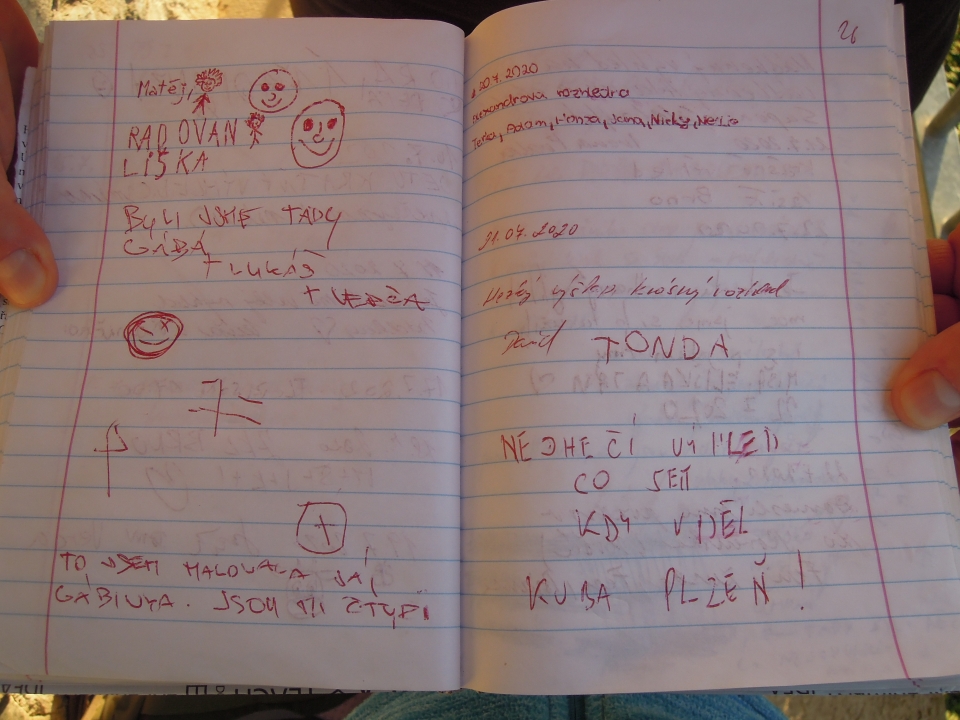 Matěj,
RADOVAN
LIŠKA
BYLI JSME TADY
GÁBA
+ LUKÁŠ
+
TO JSEM MALOVALA JÁ,
GÁBINKA. JSOU MI
26
20.7.2020
rozhledna
Adam, Honza, Jana, Nicky,
21.07.2020
Hezký výšlap krásný rozhled
David TONDA
NEJHEČÍ VÍHLED
CO SEM
KDY VIDĚL
KUBA PLZEŇ!